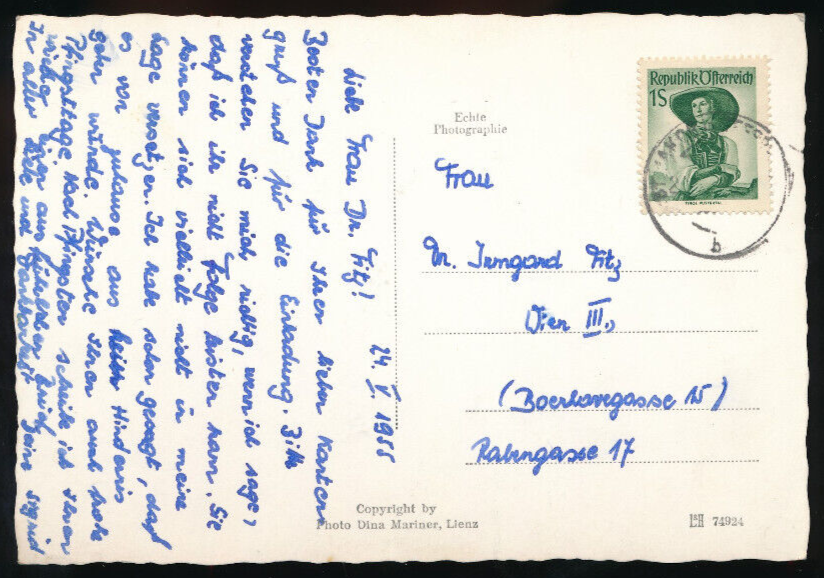 24. V. 1955
Liebe Frau Dr. Fitz!
Besten Dank für Ihren lieben Karten
gruß und für die Einladung. Bitte
verstehen Sie mich richtig, wenn ich sage,
daß ich ihr nicht Folge leisten kann. Sie
können sich vielleicht nicht in meine
Lage versetzen. Ich habe schon gesagt, daß
es von zuhause aus kein Hindernis
gehn würde. Wünsche Ihnen auch frohe
Pfingsttage. Nach Pfingsten schreibe ich Ihnen
wieder einen ausführlichen Brief.
In aller Liebe und Dankbarkeit Ihre Sigrid
Echte
Photographie
Republik Österreich
1S
TIROL PUSTERTAL
b
Frau
Dr. Irmgard Fitz
Wien III.,
(Boerhavegasse 15)
Rabengasse 17
Copyright by
Photo Dina Mariner, Lienz
74924